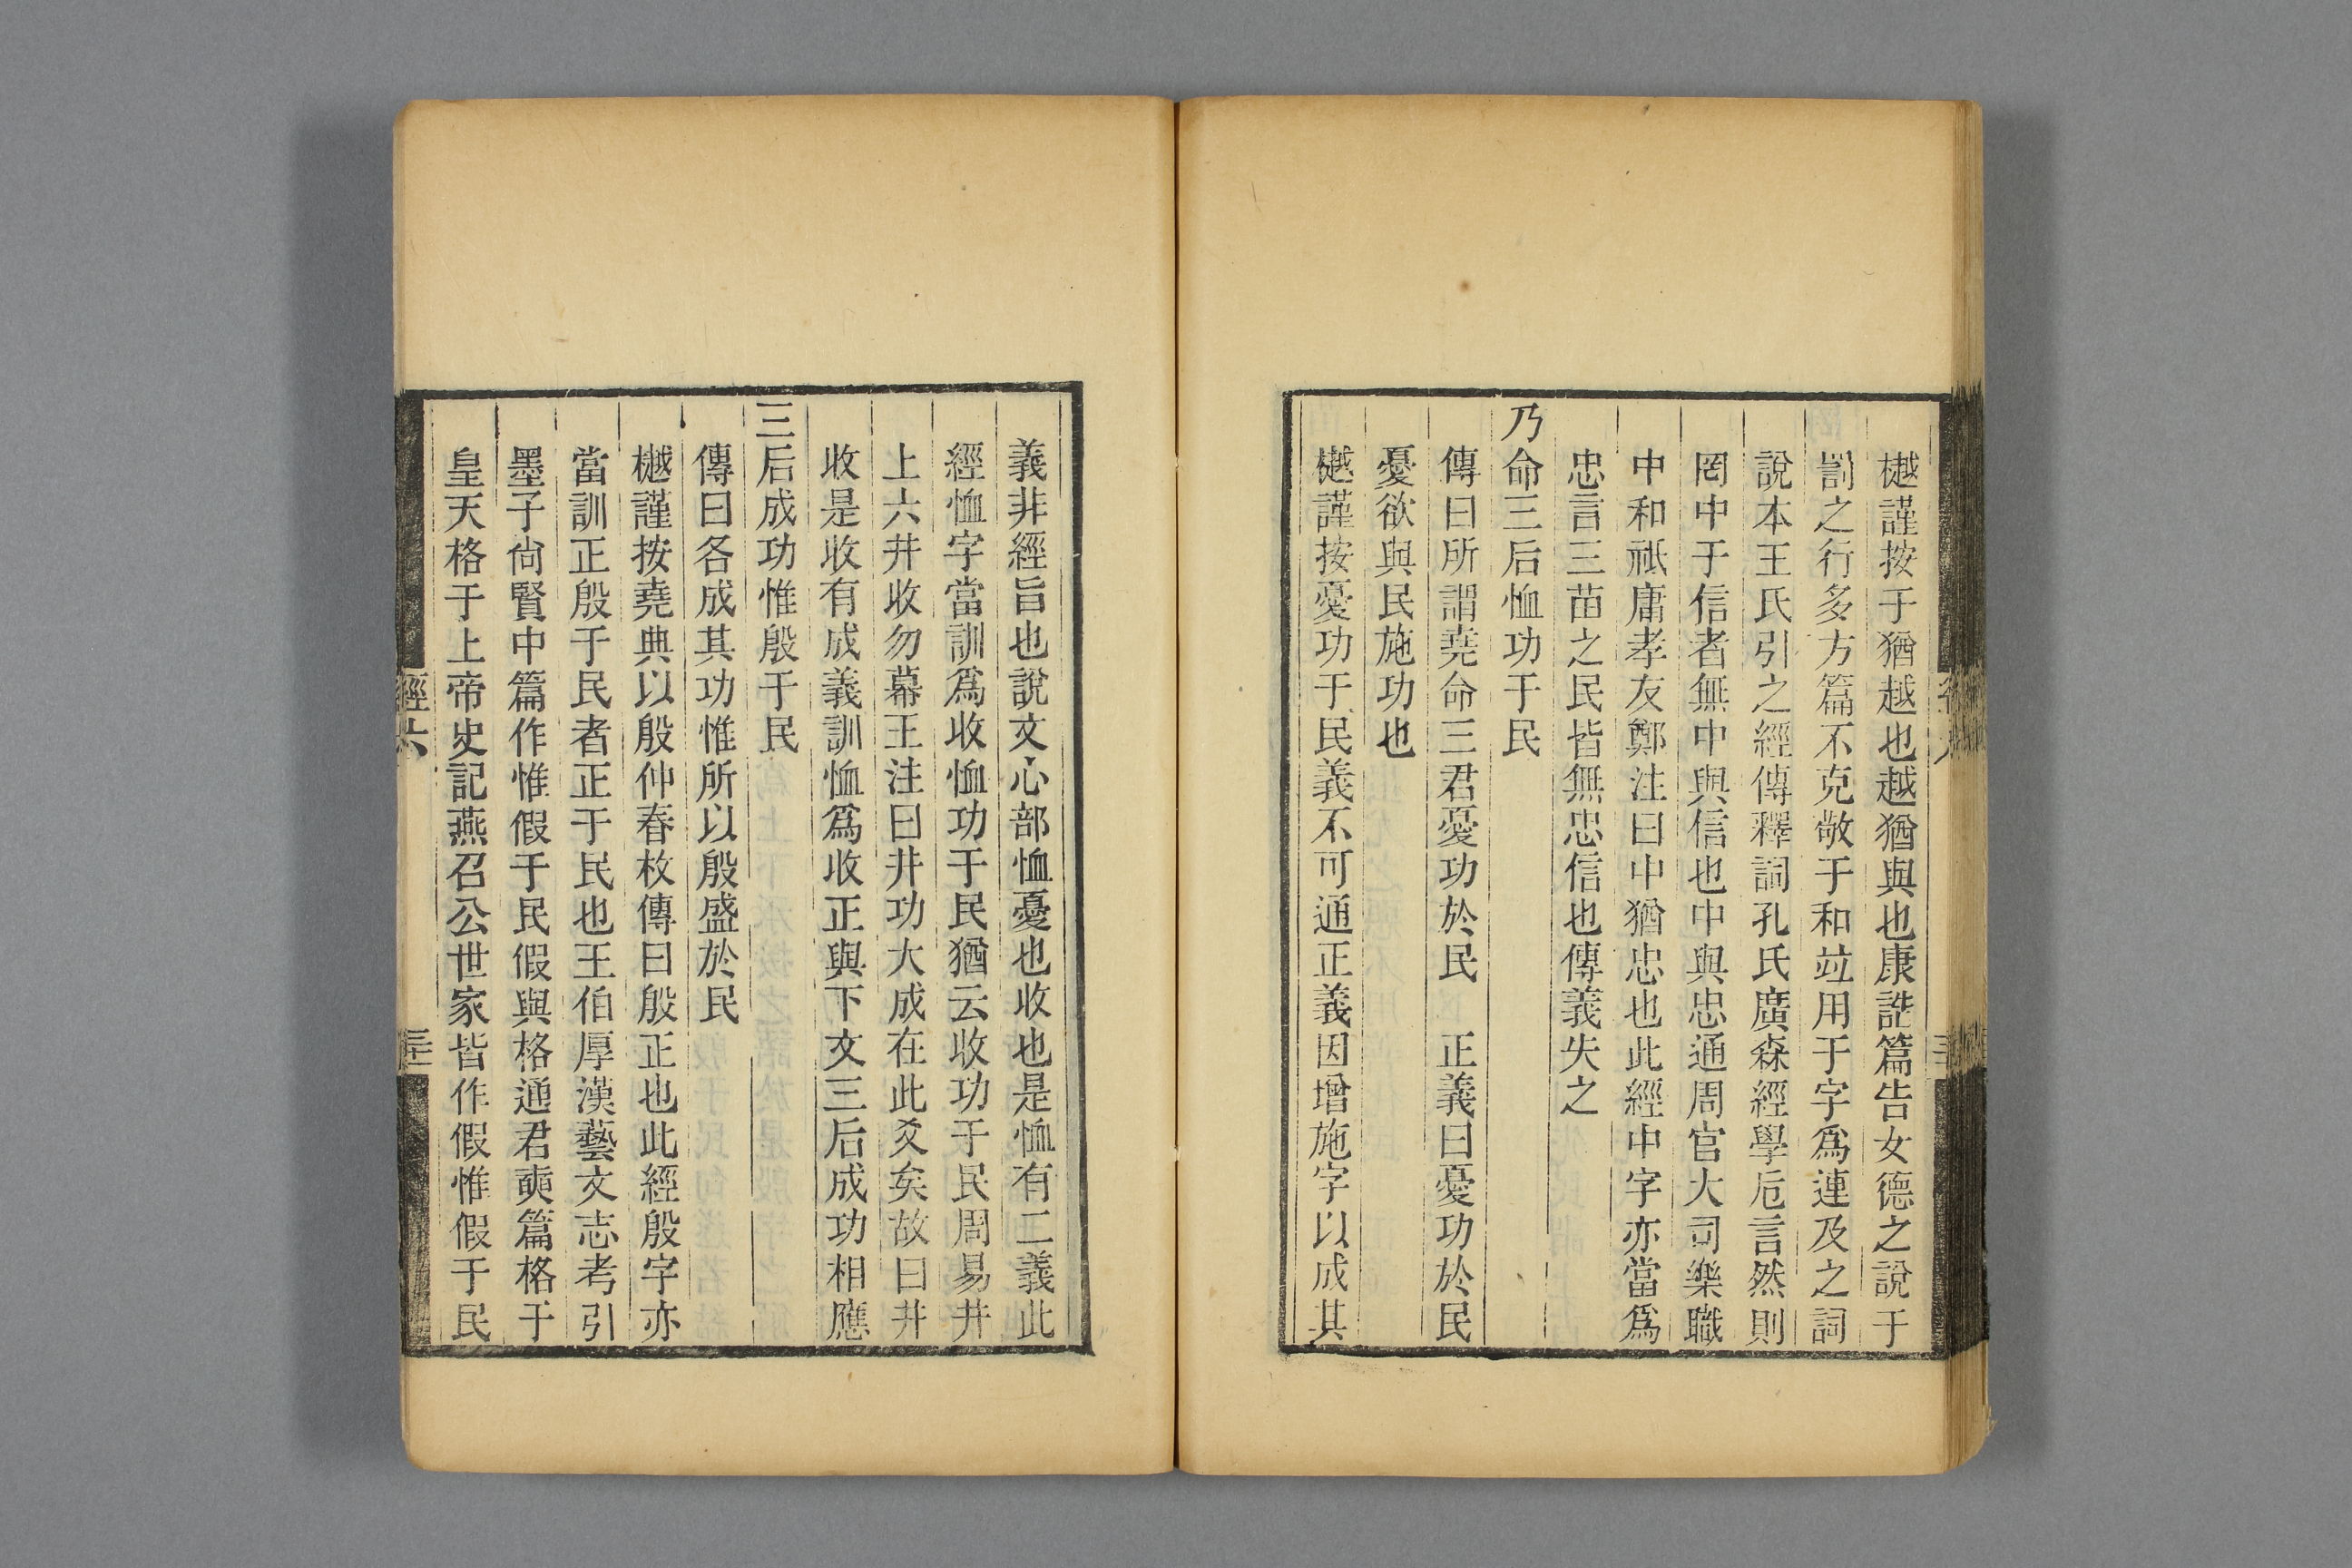 樾謹按于猶越也越猶與也康誥篇告女德之說于
罰之行多方篇不克敬于和竝用于字爲連及之詞
說本王氏引之經傳釋詞孔氏廣森經學卮言然則
罔中于信者無中與信也中與忠通周官大司樂職
中和祗庸孝友鄭注曰中猶忠也此經中字亦當爲
忠言三苗之民皆無忠信也傳義失之
乃命三后恤功于民
傳曰所謂堯命三君憂功於民　正義曰憂功於民
憂欲與民施功也
樾謹按憂功于民義不可通正義因增施字以成其
義非經旨也說文心部恤憂也收也是恤有二義此
經恤字當訓爲收恤功于民猶云收功于民周易井
上六井收勿幕王注曰井功大成在此爻矣故曰井
收是收有成義訓恤爲收正與下文三后成功相應
三后成功惟殷于民
傳曰各成其功惟所以殷盛於民
樾謹按堯典以殷仲春枚傳曰殷正也此經殷字亦
當訓正殷于民者正于民也王伯厚漢藝文志考引
墨子尙賢中篇作惟假于民假與格通君奭篇格于
皇天格于上帝史記燕召公世家皆作假惟假于民
經六